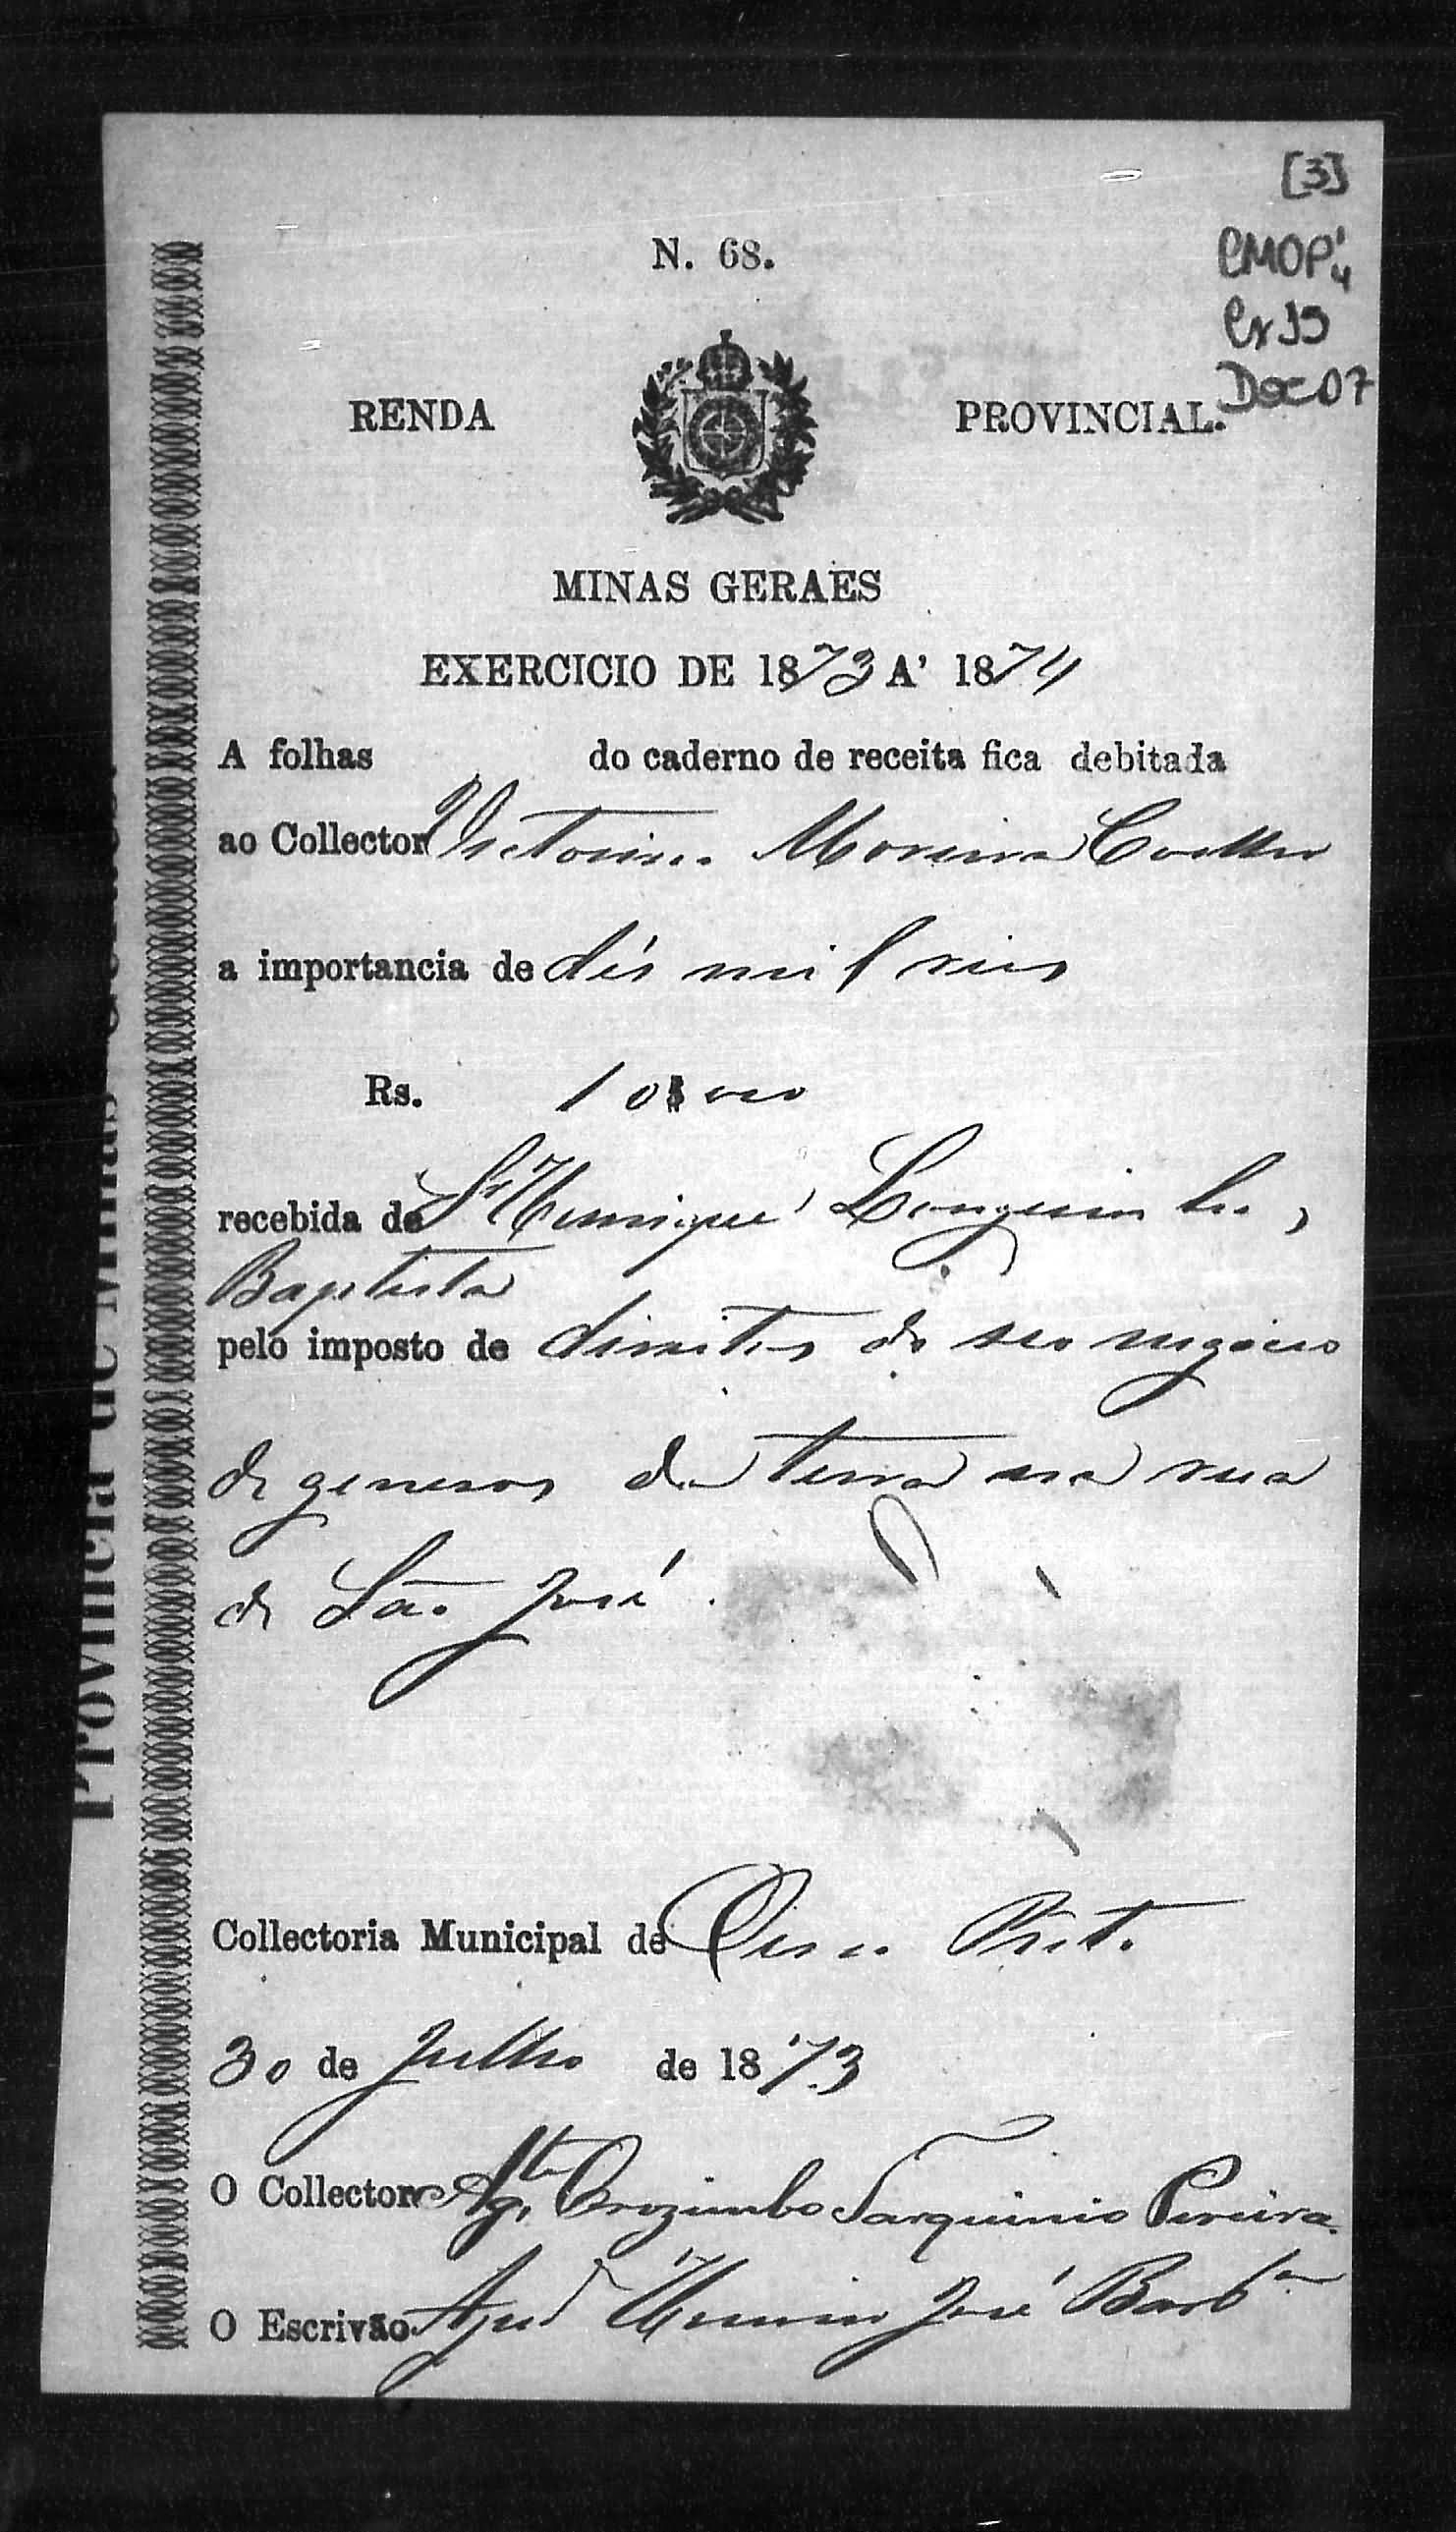 [3]
N. 68.
CMOP
Cx 19
Doc 07
RENDA PROVINCIAL.
MINAS GERAES
EXERCICIO DE 1873 A' 1874
A folhas do caderno de receita fica debitada
ao Collector Victorino Moreira Coelho
a importancia de dés mil reis
Rs. 10$000
recebida de Sr Henrique
Baptista
pelo imposto de direitos do seo negocio
de generos da terra na rua
de São José.
Collectoria Municipal de Ouro Preto
30 de Julho de 1873
O Collector Agte Orozimbo Tarquinio Pereira
O Escrivão Ajud José Barba
Provincia de Minas